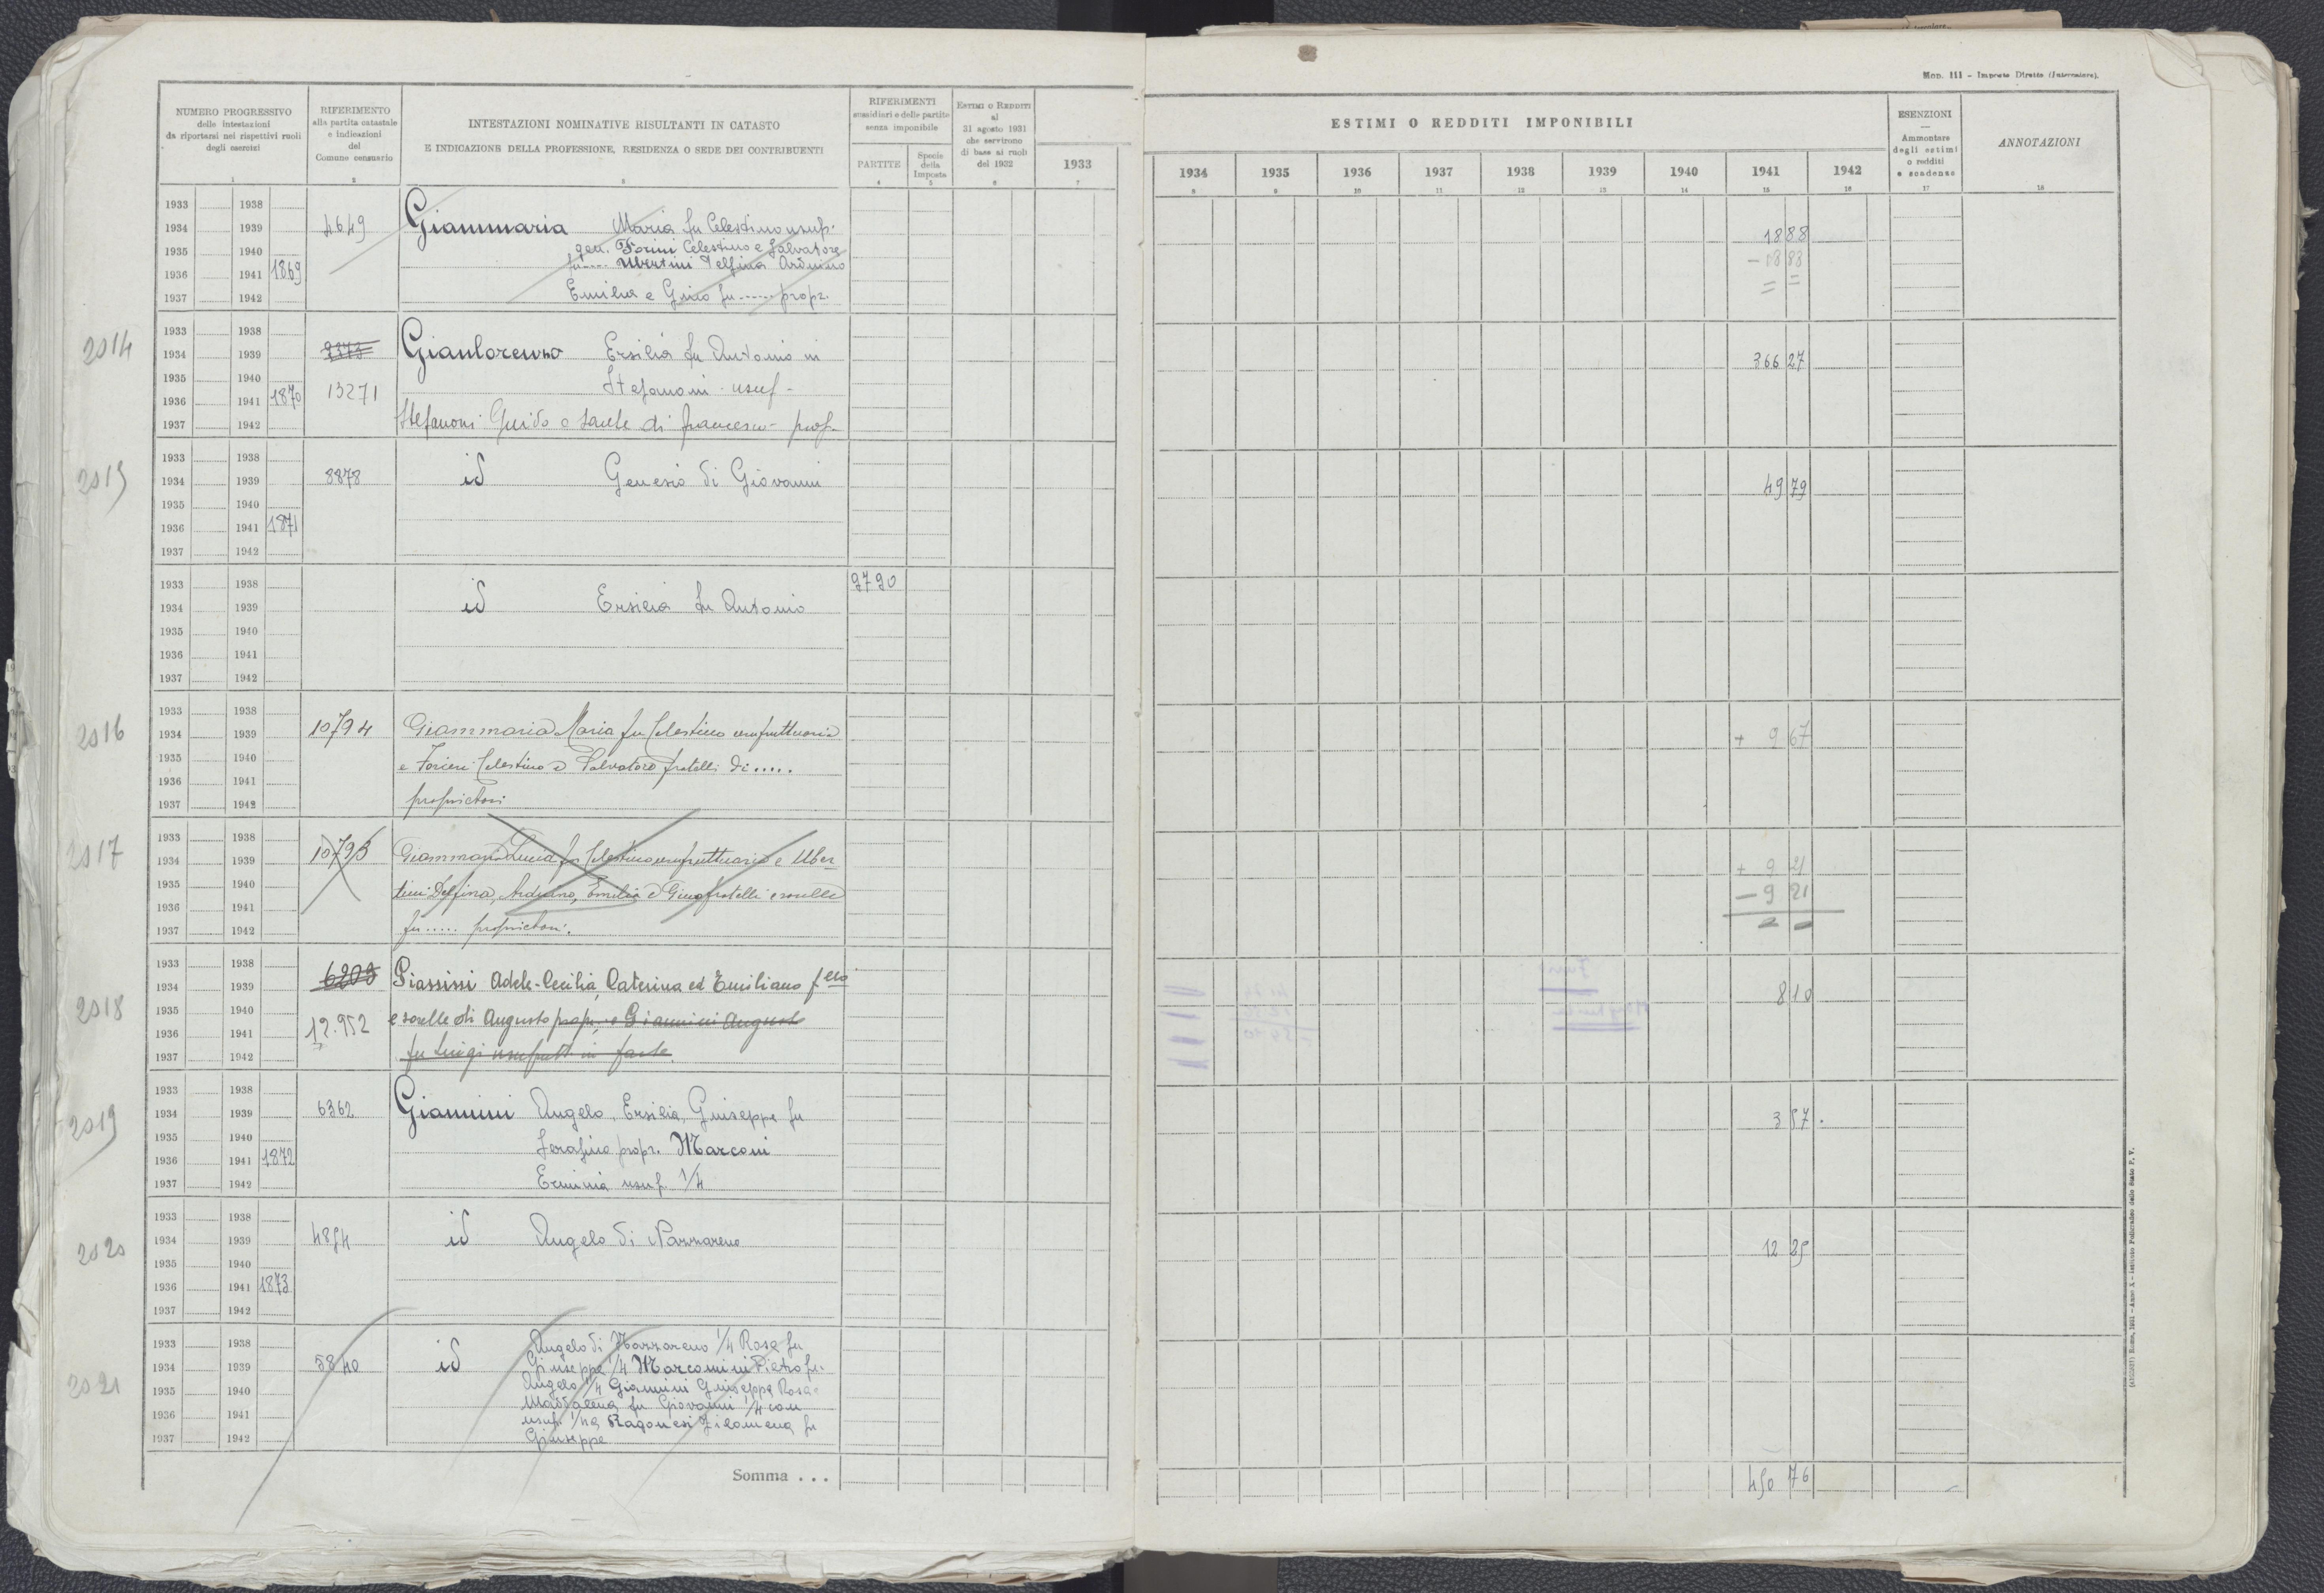 Mod. 111 - Imposte Dirette (Intercalare).
NUMERO PROGRESSIVO
delle intestazioni
da riportarsi nei rispettivi ruoli
degli esercizi
1
RIFERIMENTO
alla partita catastale
e indicazioni
del
Comune censuario
2
INTESTAZIONI NOMINATIVE RISULTANTI IN CATASTO
E INDICAZIONE DELLA PROFESSIONE, RESIDENZA O SEDE DEI CONTRIBUENTI
3
RIFERIMENTI
sussidiari e delle partite
senza imponibile
PARTITE
4
Specie
della
Imposta
5
ESTIMI O REDDITI
al
31 agosto 1931
che servirono
di base ai ruoli
del 1932
6
1933
7
ESTIMI O REDDITI IMPONIBILI
1934 1935 1936 1937 1938 1939 1940 1941 1942
8 9 10 11 12 13 14 15 16
ESENZIONI
Ammontare
degli estimi
o redditi
e scadenze
17
ANNOTAZIONI
18
1933 1938
1934 1939
1935 1940
1936 1941 1869
1937 1942
4649
Giammaria Maria fu Celestino usuf.
gen. Forini Celestino e Salvatore
fu .... Ubertini Delfina Arduino
Emilia e Gino fu ...... propr.
18 88
- 18 88
= =
2014
1933 1938
1934 1939
1935 1940
1936 1941 1870
1937 1942
13271
Gianlorenzo Ersilia fu Antonio in
Stefanoni usuf -
Stefanoni Guido e Sante di Francesco - prop.
366 27
2015
1933 1938
1934 1939
1935 1940
1936 1941 1871
1937 1942
8878
id Genesio di Giovanni
49 79
1933 1938
1934 1939
1935 1940
1936 1941
1937 1942
id Ersilia fu Antonio
9790
2016
1933 1938
1934 1939
1935 1940
1936 1941
1937 1942
10794
Giammaria Maria fu Celestino usufruttuaria
e Forieri Celestino e Salvatore fratelli di .....
proprietari
+ 9 67
2017
1933 1938
1934 1939
1935 1940
1936 1941
1937 1942
10795
Giammaria Lucia fu Celestino usufruttuaria e Uber-
tini Delfina, Arduino, Emilia e Gino fratelli e sorelle
fu ..... proprietari.
+ 9 21
- 9 21
= =
2018
1933 1938
1934 1939
1935 1940
1936 1941
1937 1942
6209
12.952
Piassisi Adele-Cecilia, Caterina ed Emiliano f.llo
e sorelle di Augusto propr. e Giannini Augusto
fu Luigi usufrutt. in parte
8 10
2019
1933 1938
1934 1939
1935 1940
1936 1941 1872
1937 1942
6362
Giannini Angelo, Ersilia, Giuseppe fu
Serafino propr. Marconi
Erminia usuf. 1/4
3 57.
2020
1933 1938
1934 1939
1935 1940
1936 1941 1873
1937 1942
4854
id Angelo di Nazzareno
12 25
2021
1933 1938
1934 1939
1935 1940
1936 1941
1937 1942
5840
id Angelo di Nazzareno 1/4 Rosa fu
Giuseppe 1/4 Marconini Pietro fu
Angelo 1/4 Giannini Giuseppe Rosa
Maddalena fu Giovanni 1/4 con
usuf. Ragonesi Filomena fu
Giuseppe
Somma . . .
450 76